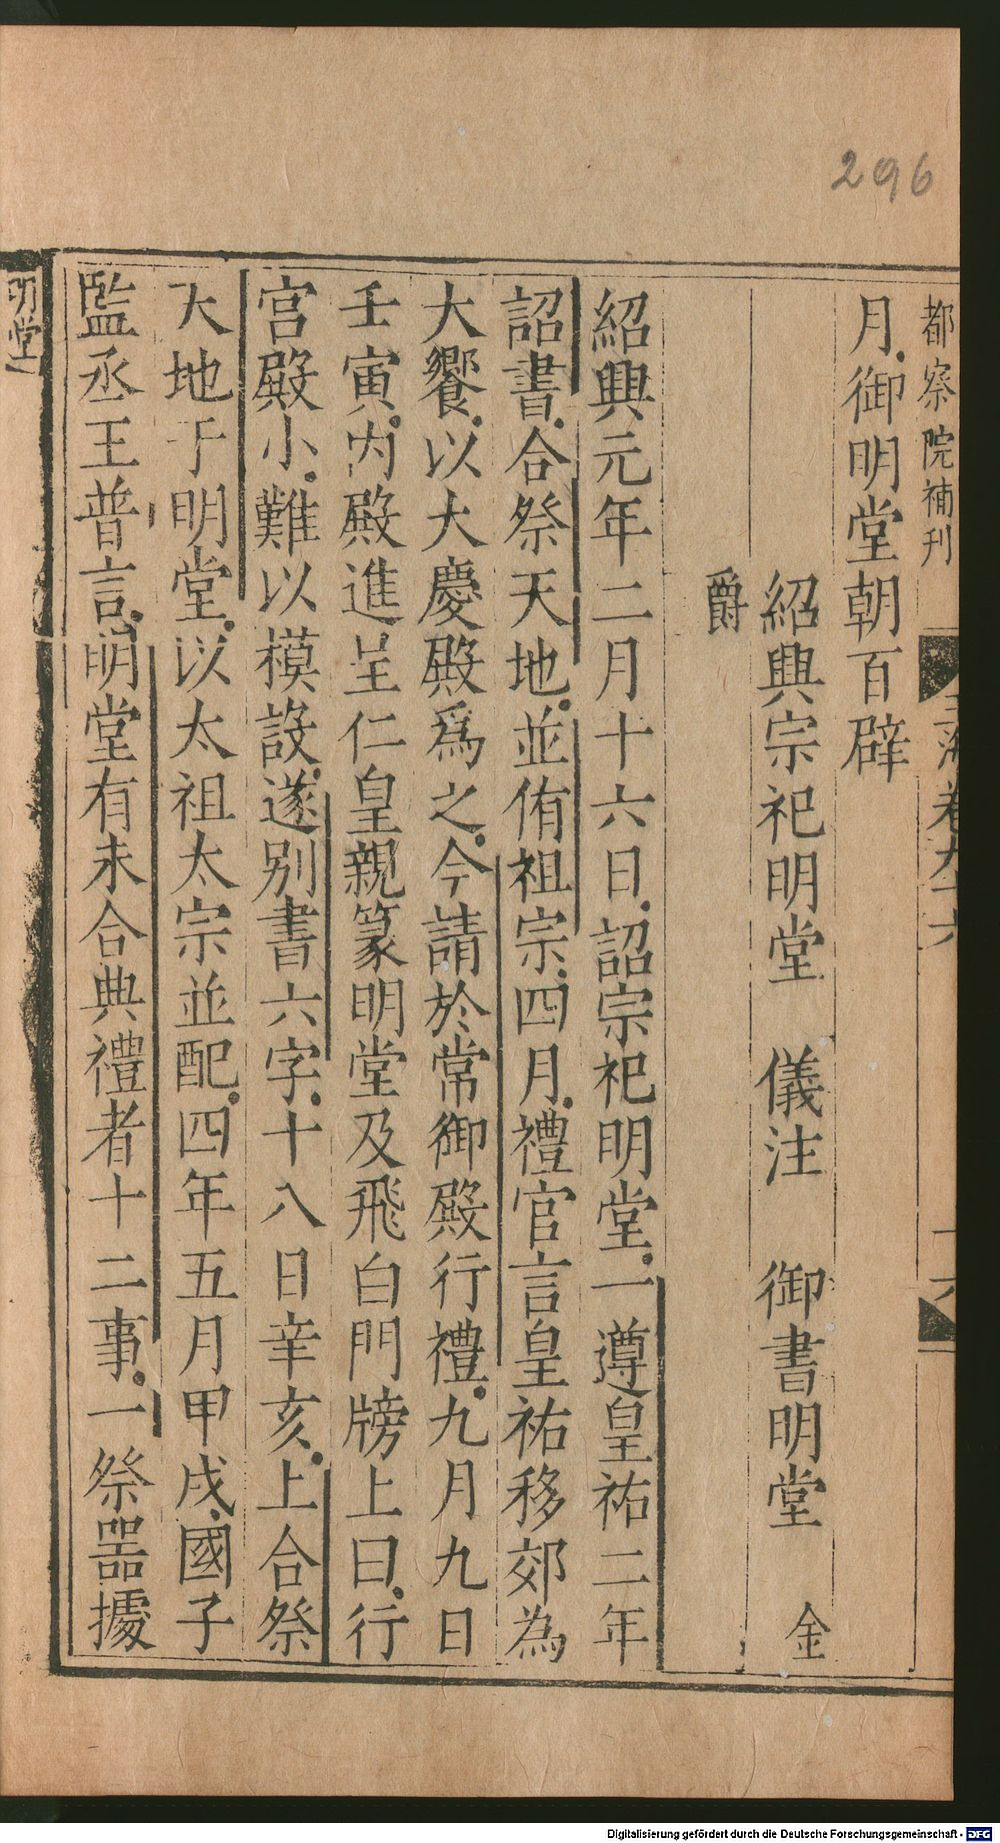 296
都察院補刊
玉海卷九十六
十六
月御明堂朝百辟
紹興宗祀明堂　儀注　御書明堂　金
爵
紹興元年二月十六日詔宗祀明堂一遵皇祐二年
詔書合祭天地並侑祖宗四月禮官言皇祐移郊為
大饗以大慶殿爲之今請於常御殿行禮九月九日
壬寅內殿進呈仁皇親篆明堂及飛白門牓上曰行
宮殿小難以模設遂别書六字十八日辛亥上合祭
天地于明堂以太祖太宗並配四年五月甲戌國子
監丞王普言明堂有未合典禮者十二事一祭噐據
明堂
Digitalisierung gefördert durch die Deutsche Forschungsgemeinschaft - DFG